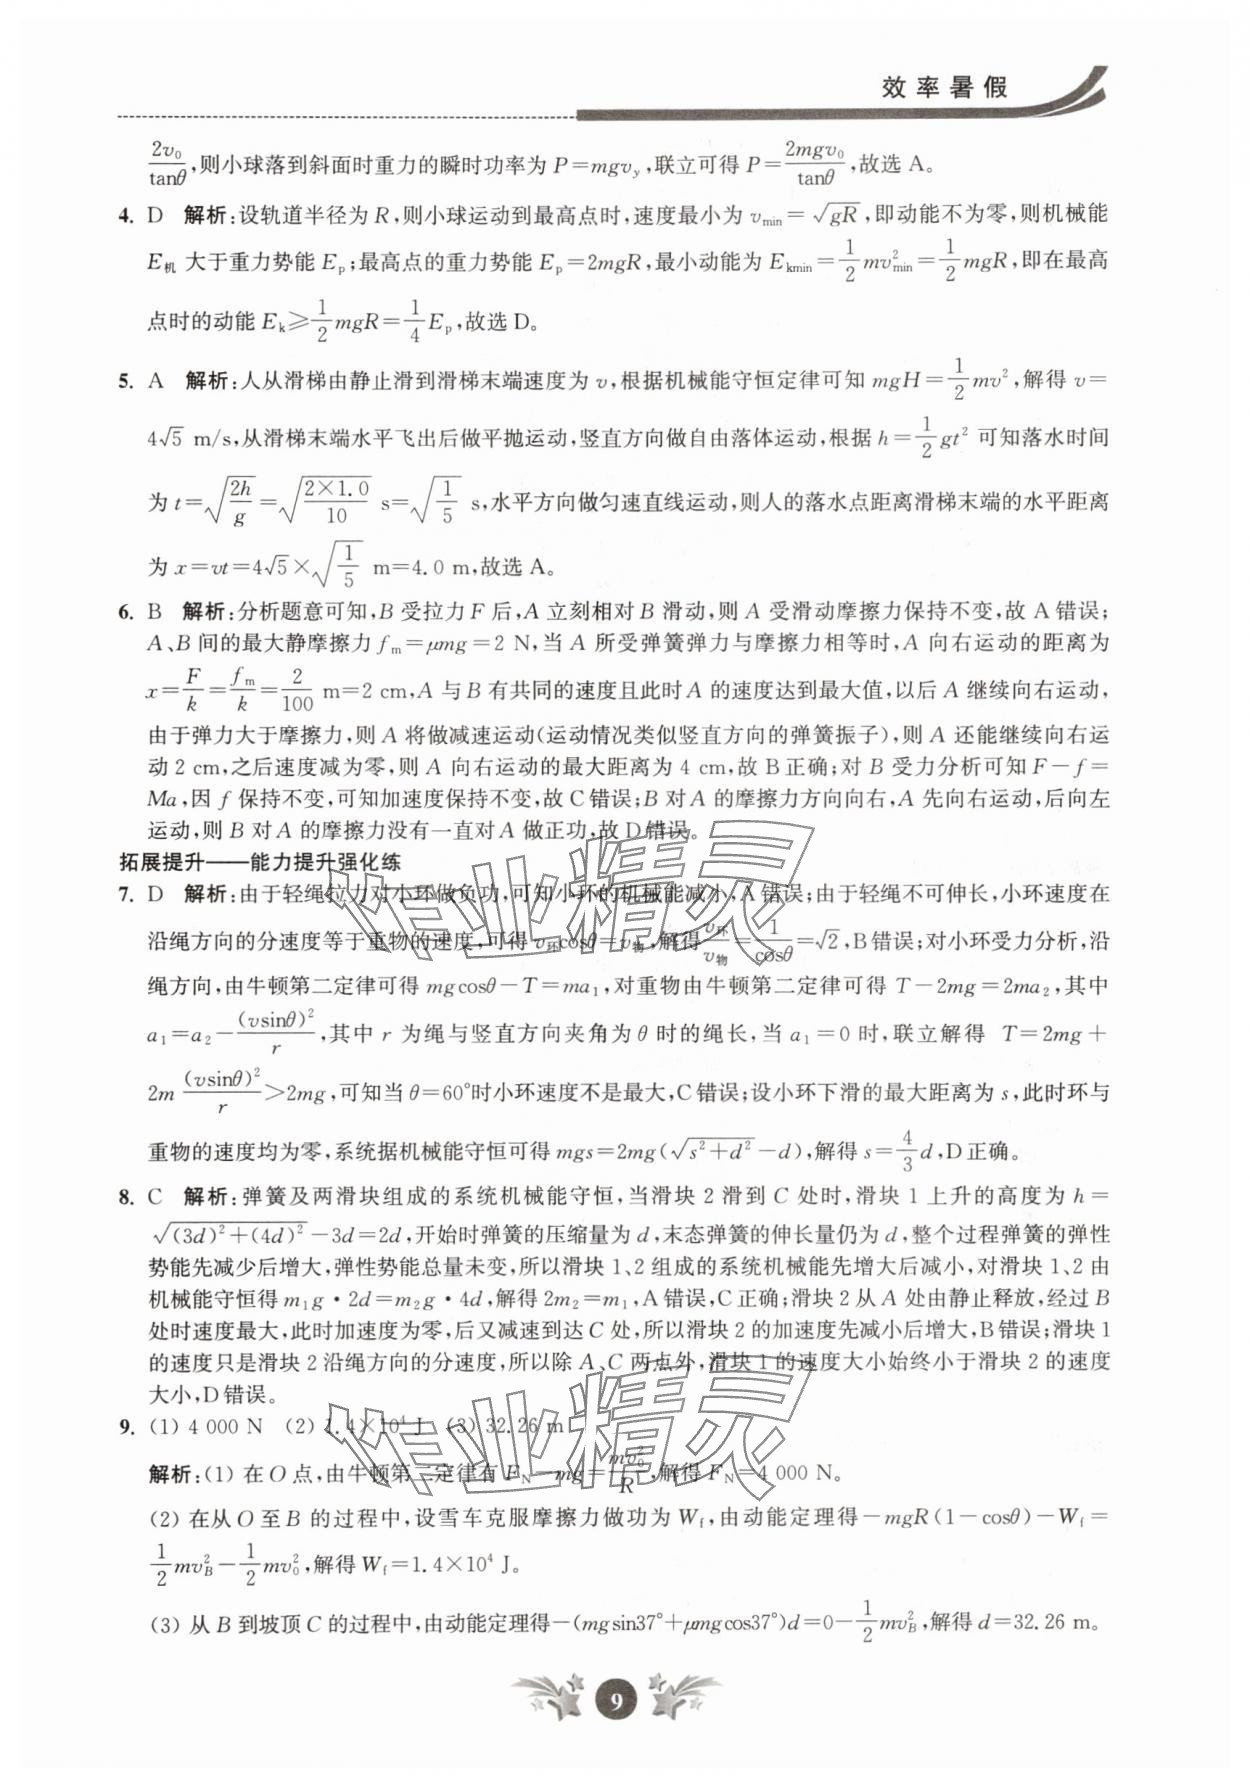 效率暑假
2v₀/tanθ,则小球落到斜面时重力的瞬时功率为 P=mgv_y,联立可得 P=2mgv₀/tanθ,故选 A。
4. D 解析:设轨道半径为 R,则小球运动到最高点时,速度最小为 v_min=√(gR),即动能不为零,则机械能
E_机 大于重力势能 E_p;最高点的重力势能 E_p=2mgR,最小动能为 E_kmin=1/2 mv²_min=1/2 mgR,即在最高
点时的动能 E_k≥1/2 mgR=1/4 E_p,故选 D。
5. A 解析:人从滑梯由静止滑到滑梯末端速度为 v,根据机械能守恒定律可知 mgH=1/2 mv²,解得 v=
4√5 m/s,从滑梯末端水平飞出后做平抛运动,竖直方向做自由落体运动,根据 h=1/2 gt² 可知落水时间
为 t=√(2h/g)=√(2×1.0/10) s=√(1/5) s,水平方向做匀速直线运动,则人的落水点距离滑梯末端的水平距离
为 x=vt=4√5×√(1/5) m=4.0 m,故选 A。
6. B 解析:分析题意可知,B 受拉力 F 后,A 立刻相对 B 滑动,则 A 受滑动摩擦力保持不变,故 A 错误;
A、B 间的最大静摩擦力 f_m=μmg=2 N,当 A 所受弹簧弹力与摩擦力相等时,A 向右运动的距离为
x=F/k=f_m/k=2/100 m=2 cm,A 与 B 有共同的速度且此时 A 的速度达到最大值,以后 A 继续向右运动,
由于弹力大于摩擦力,则 A 将做减速运动(运动情况类似竖直方向的弹簧振子),则 A 还能继续向右运
动 2 cm,之后速度减为零,则 A 向右运动的最大距离为 4 cm,故 B 正确;对 B 受力分析可知 F-f=
Ma,因 f 保持不变,可知加速度保持不变,故 C 错误;B 对 A 的摩擦力方向向右,A 先向右运动,后向左
运动,则 B 对 A 的摩擦力没有一直对 A 做正功,故 D 错误。
拓展提升——能力提升强化练
7. D 解析:由于轻绳拉力对小环做负功,可知小环的机械能减小,A 错误;由于轻绳不可伸长,小环速度在
沿绳方向的分速度等于重物的速度,可得 v_环cosθ=v_物,解得 v_环/v_物=1/cosθ=√2,B 错误;对小环受力分析,沿
绳方向,由牛顿第二定律可得 mgcosθ-T=ma₁,对重物由牛顿第二定律可得 T-2mg=2ma₂,其中
a₁=a₂-(vsinθ)²/r,其中 r 为绳与竖直方向夹角为 θ 时的绳长,当 a₁=0 时,联立解得 T=2mg+
2m (vsinθ)²/r>2mg,可知当 θ=60°时小环速度不是最大,C 错误;设小环下滑的最大距离为 s,此时环与
重物的速度均为零,系统据机械能守恒可得 mgs=2mg(√(s²+d²)-d),解得 s=4/3 d,D 正确。
8. C 解析:弹簧及两滑块组成的系统机械能守恒,当滑块 2 滑到 C 处时,滑块 1 上升的高度为 h=
√((3d)²+(4d)²)-3d=2d,开始时弹簧的压缩量为 d,末态弹簧的伸长量仍为 d,整个过程弹簧的弹性
势能先减少后增大,弹性势能总量未变,所以滑块 1、2 组成的系统机械能先增大后减小,对滑块 1、2 由
机械能守恒得 m₁g·2d=m₂g·4d,解得 2m₂=m₁,A 错误,C 正确;滑块 2 从 A 处由静止释放,经过 B
处时速度最大,此时加速度为零,后又减速到达 C 处,所以滑块 2 的加速度先减小后增大,B 错误;滑块 1
的速度只是滑块 2 沿绳方向的分速度,所以除 A、C 两点外,滑块 1 的速度大小始终小于滑块 2 的速度
大小,D 错误。
9. (1) 4 000 N (2) 1.4×10⁴ J (3) 32.26 m
解析:(1) 在 O 点,由牛顿第二定律有 F_N-mg=mv₀²/R,解得 F_N=4 000 N。
(2) 在从 O 至 B 的过程中,设雪车克服摩擦力做功为 W_f,由动能定理得-mgR(1-cosθ)-W_f=
1/2 mv_B²-1/2 mv₀²,解得 W_f=1.4×10⁴ J。
(3) 从 B 到坡顶 C 的过程中,由动能定理得-(mgsin37°+μmgcos37°)d=0-1/2 mv_B²,解得 d=32.26 m。
9
作业精灵
作业精灵